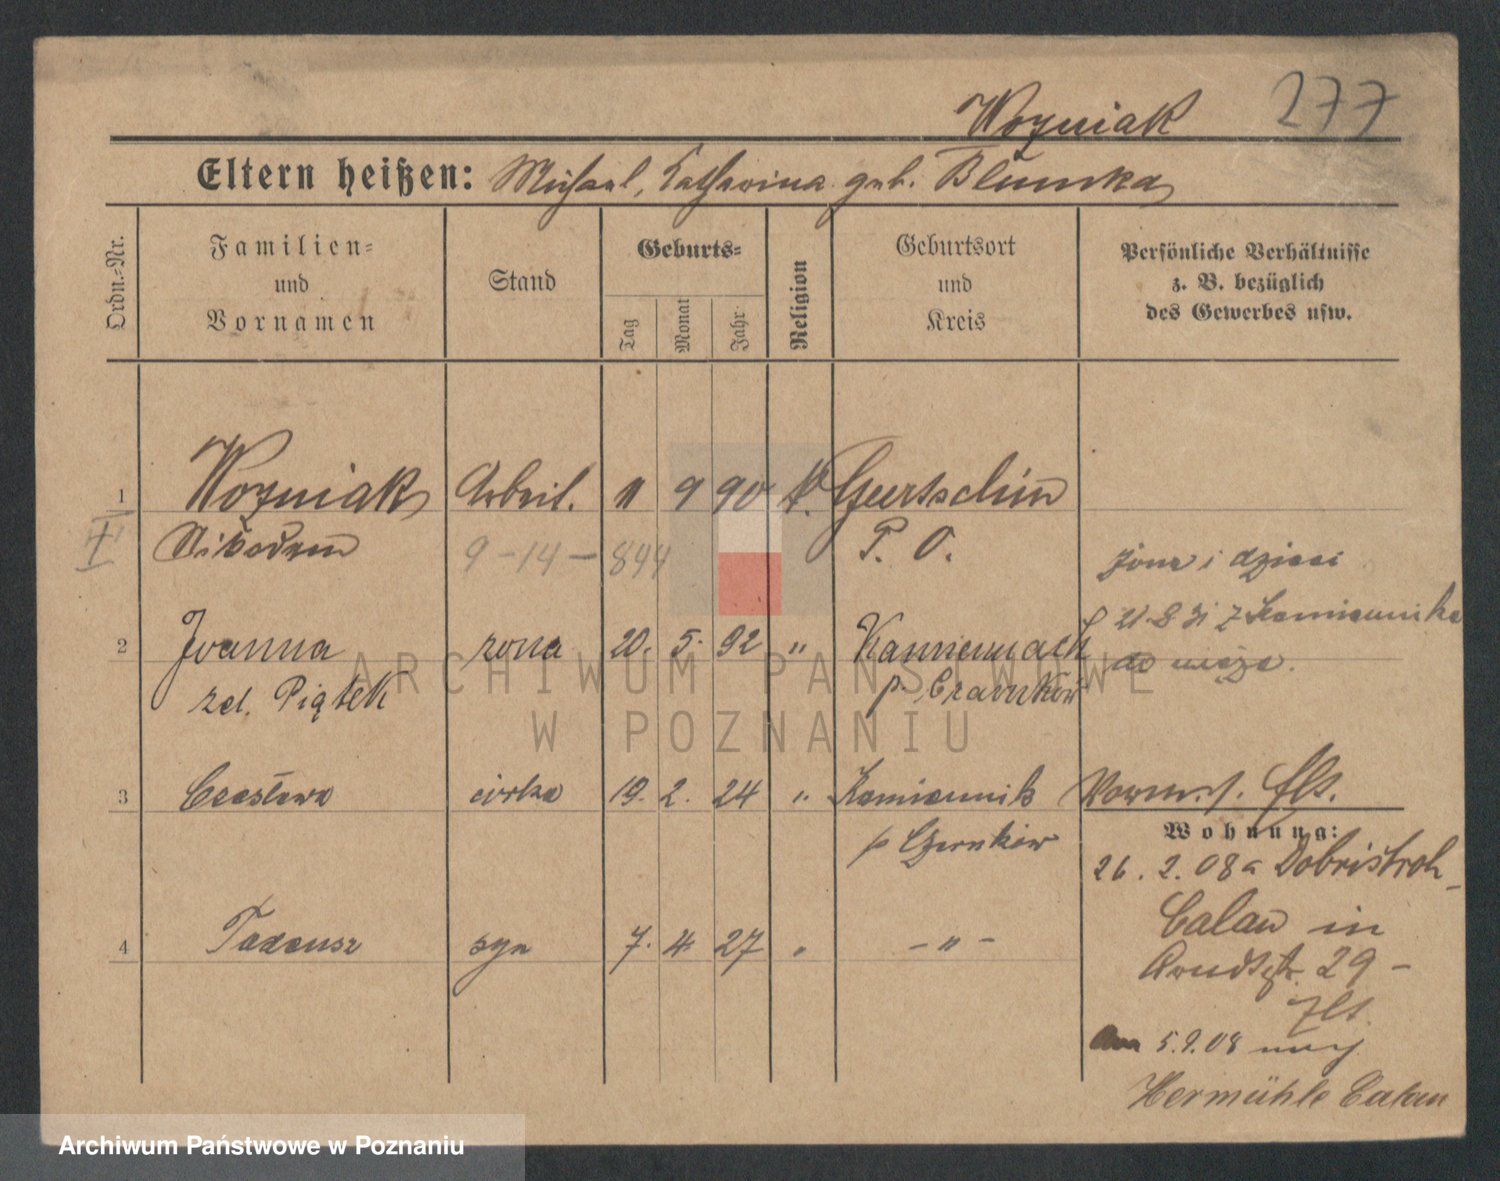 Wozniak 277
Eltern heißen: Michael, Katharina geb. Blumka
Ordn.-Nr.
Familien-
und
Vornamen
Stand
Geburts-
Tag
Monat
Jahr
Religion
Geburtsort
und
Kreis
Persönliche Verhältnisse
z. B. bezüglich
des Gewerbes usw.
1 Wozniak Arbeit. 11 9 90 k. Gurtschin
Nikodem 9-14-844 P. O.
żona i dzieci
z Kamiennika
2 Joanna żona 20. 5. 92 " Kamiennik
zd. Piątek p. Czarnków
3 Czesława córka 19. 2. 24 " Kamiennik
p Czarnków
Wohnung:
26. 2. 08 a Dobristroh-
Calau in
4 Tadeusz syn 7. 4. 27 " - " -
29 -
5.9.08
Hermühle Calau
ARCHIWUM PAŃSTWOWE
W POZNANIU
Archiwum Państwowe w Poznaniu